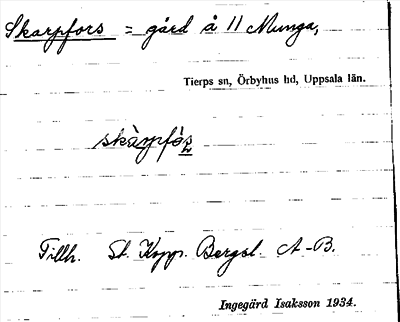 Skarpfors = gård å 11 Munga,
Tierps sn, Örbyhus hd, Uppsala län.
Tillh. St. Kopp. Bergsl. A-B.
Ingegärd Isaksson 1934.